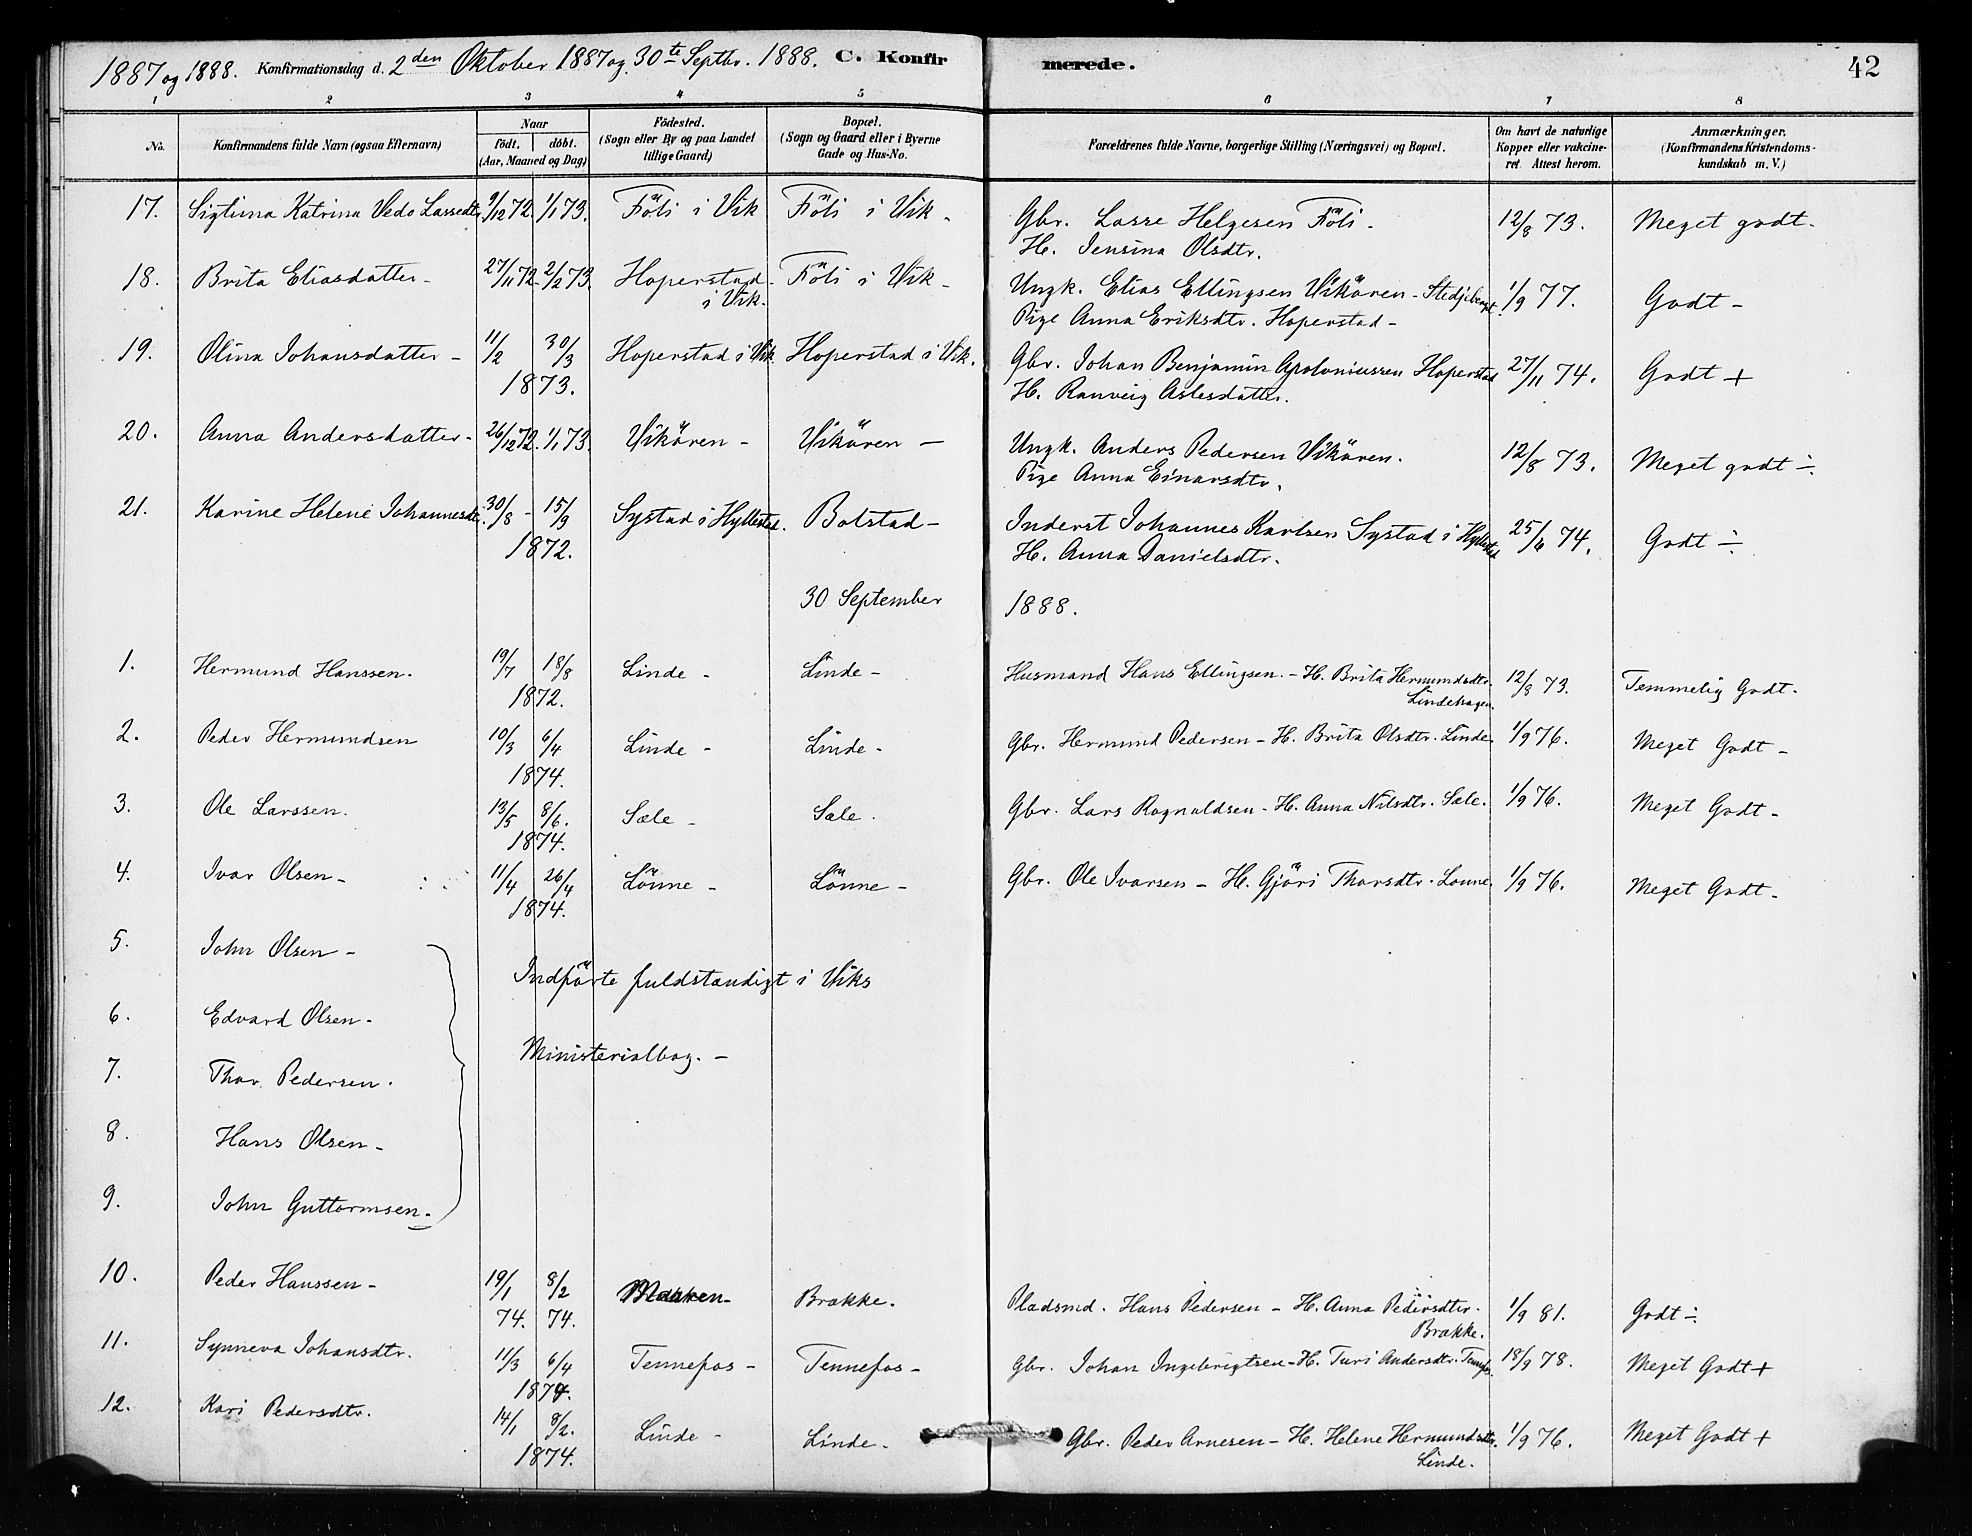 1887 og 1888. Konfirmationsdag d. 2den Oktober 1887 og 30te Septbr. 1888. C. Konfirmerede. 42
1 2 3 4 5 6 7 8
No. Konfirmandens fulde Navn (ogsaa Efternavn) Naar født. døbt. (Aar, Maaned og Dag) Födested. (Sogn eller By og paa Landet tillige Gaard) Bopæl. (Sogn og Gaard eller i Byerne Gade og Hus-No. Forældrenes fulde Navne, borgerlige Stilling (Næringsvei) og Bopæl. Om havt de naturlige Kopper eller vakcineret. Attest herom. Anmærkninger. (Konfirmandens Kristendomskundskab m. V.)
17. Sigtima Katrina Vedo Lassedtr. 9/12 72. 1/1 73. Föli i Vik Föli i Vik - Gbr. Lasse Helgesen Föli. 12/8 73. Meget godt.
H. Jensina Olsdtr.
18. Brita Eliasdatter - 27/11 72. 2/2 73. Hoperstad i Vik. Föli i Vik - Ungk. Elias Ellingsen Vikören - 1/9 77. Godt -
Pige Anna Eriksdtr. Hoperstad -
19. Olina Johansdatter - 11/2 30/3 Hoperstad i Vik. Hoperstad i Vik. Gbr. Johan Benjamin Apoloniussen Hoperstad 27/11 74. Godt +
1873. H. Ranveig Aslesdatter.
20. Anna Andersdatter - 26/12 72. 1/1 73. Vikören - Vikören - Ungk. Anders Pedersen Vikören. 12/8 73. Meget godt ÷
Pige Anna Einarsdtr.
21. Karine Helene Johannesdtr. 30/8 - 15/9 Systad i Hyllestad. Bolstad - Inderst Johannes Karlsen Systad i Hyllestad 25/6 74. Godt ÷
1872. H. Anna Danielsdtr.
30 September 1888.
1. Hermund Hanssen. 19/7 18/8 Linde - Linde - Husmand Hans Ellingsen. - H. Brita Hermundsdtr. 12/8 73. Temmelig Godt.
1872. Lindehagen.
2. Peder Hermundsen 10/3 6/4 Linde - Linde - Gbr. Hermund Pedersen - H. Brita Olsdtr. Linde. 1/9 76. Meget Godt -
1874.
3. Ole Larssen. 13/5 8/6. Sæle - Sæle. Gbr. Lars Rognaldsen - H. Anna Nilsdtr. Sæle. 1/9 76. Meget Godt -
1874.
4. Ivar Olsen - 11/4 26/4 Lönne - Lönne - Gbr. Ole Ivarsen - H. Gjöri Thorsdtr. Lönne. 1/9 76. Meget Godt -
1874.
5. John Olsen -
Indförte fuldstændigt i Viks
6. Edvard Olsen -
Ministerialbog. -
7. Thor Pedersen.
8. Hans Olsen -
9. John Guttormsen.
10. Peder Hanssen - 19/1 8/2 Brække. Pladsmd. Hans Pedersen - H. Anna Pedersdtr. 1/9 81. Godt ÷
74. 74. Brække.
11. Synneva Johansdtr. 11/3 6/4 Tennefos - Tennefos - Gbr. Johan Ingebrigtsen - H. Turi Andersdtr. Tennefos. 18/9 78. Meget Godt +
1874.
12. Kari Pedersdtr. 14/1 8/2. Linde - Linde. Gbr. Peder Arnesen - H. Helene Hermundsdtr. 1/9 76. Meget Godt +
1874. Linde.